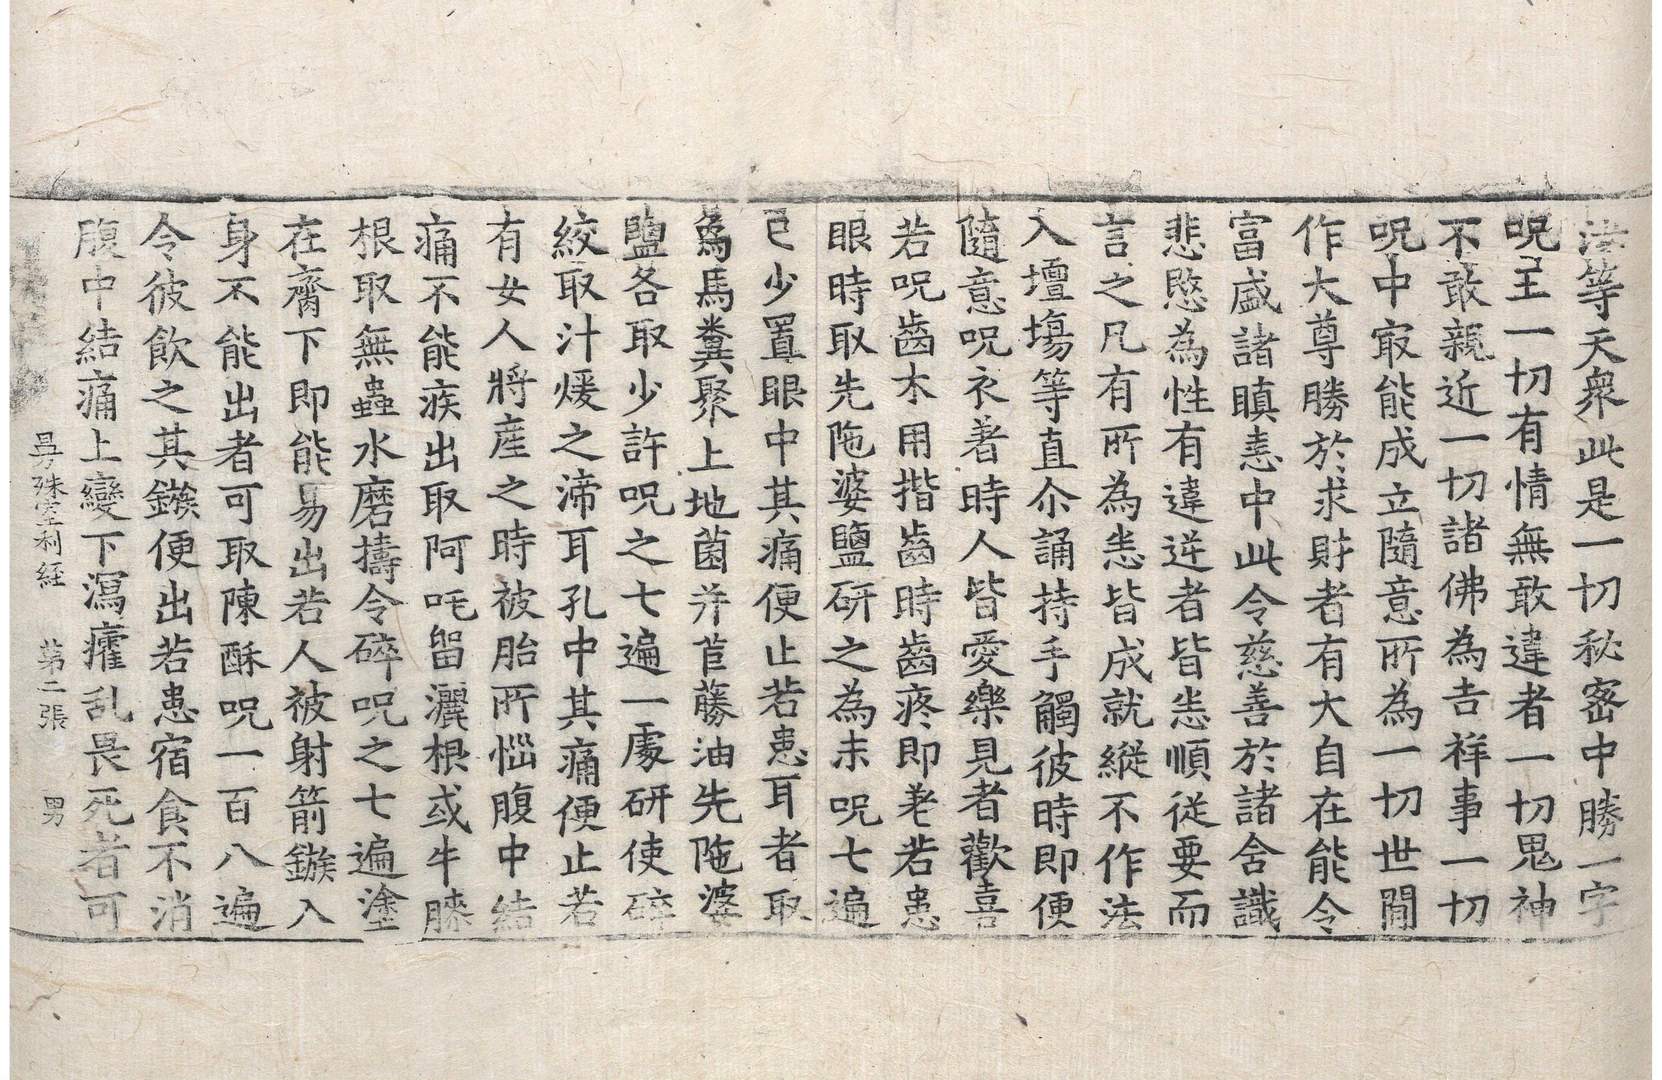 法等天衆此是一切秘密中勝一字
呪王一切有情無敢違者一切鬼神
不敢親近一切諸佛為吉祥事一切
呪中冣能成立隨意所為一切世間
作大尊勝於求財者有大自在能令
富盛諸瞋恚中此令慈善於諸含識
悲愍為性有違逆者皆悉順従要而
言之凡有所為悉皆成就縱不作法
入壇場等直尒誦持手觸彼時即便
隨意呪衣著時人皆愛樂見者歡喜
若呪齒木用揩齒時齒疼即差若患
眼時取先陁婆鹽研之為末呪七遍
已少置眼中其痛便止若患耳者取
為馬糞聚上地菌并苣藤油先陁婆
鹽各取少許呪之七遍一處研使碎
絞取汁煖之渧耳孔中其痛便止若
有女人將産之時被胎所惱腹中結
痛不能疾出取阿吒留灑根或牛膝
根取無蟲水磨擣令碎呪之七遍塗
在臍下即能易出若人被射箭鏃入
身不能出者可取陳酥呪一百八遍
令彼飲之其鏃便出若患宿食不消
腹中結痛上變下瀉癨乱畏死者可
曼殊室利経 第二張 男